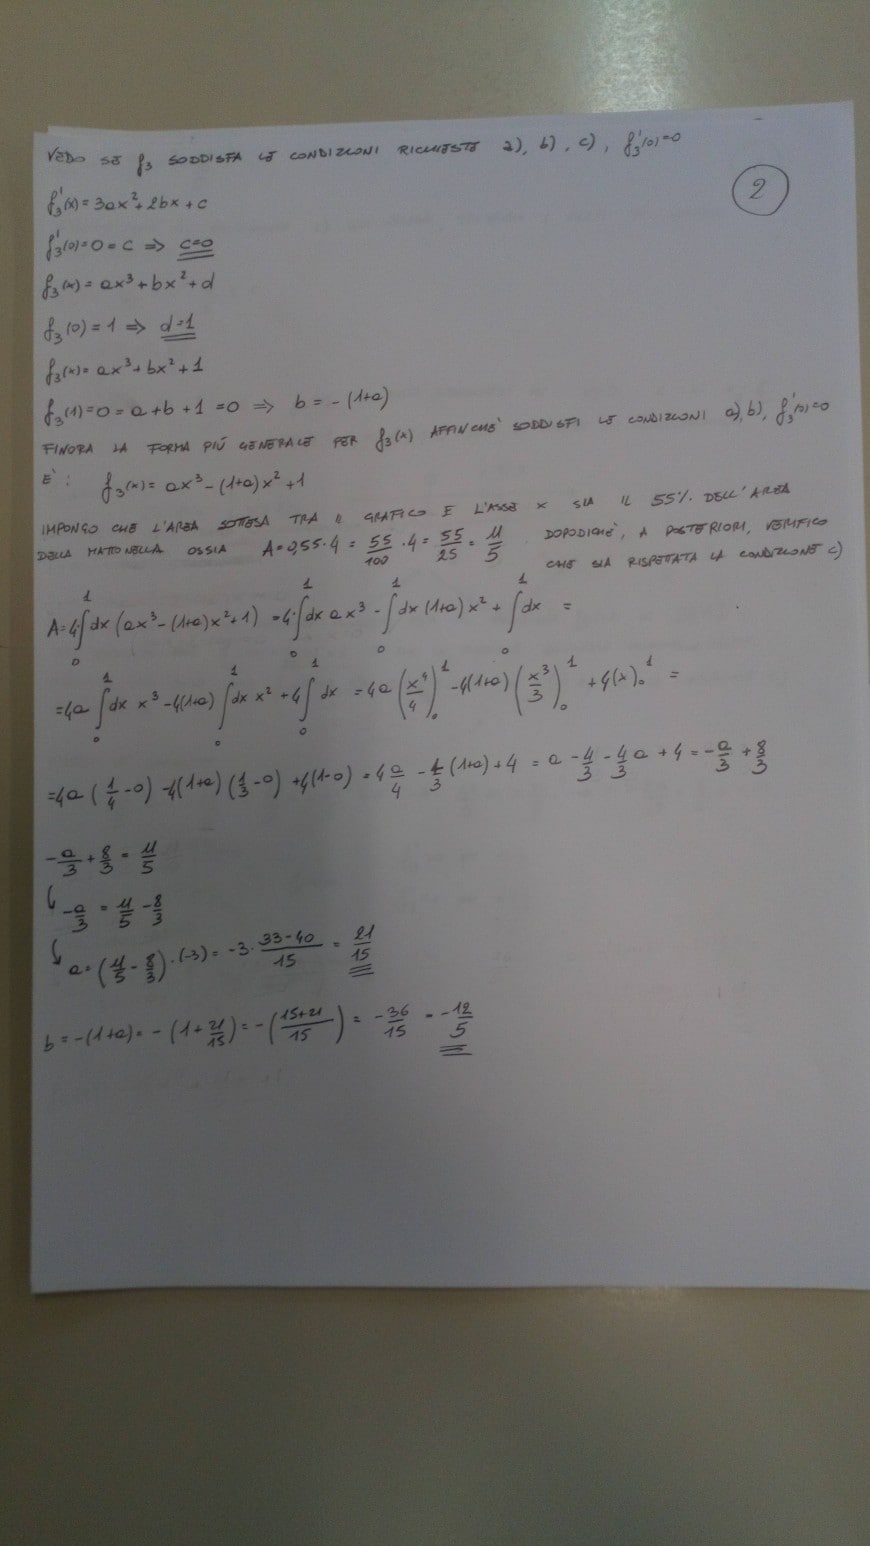 VEDO SE f₃ SODDISFA LE CONDIZIONI RICHIESTE a), b), c), f₃'(0)=0
2
f₃'(x) = 3ax²+2bx+c
f₃'(0)=0=c ⇒ c=0
f₃(x) = ax³+bx²+d
f₃(0)=1 ⇒ d=1
f₃(x)= ax³+bx²+1
f₃(1)=0= a+b+1=0 ⇒ b=-(1+a)
FINORA LA FORMA PIÚ GENERALE PER f₃(x) AFFINCHE' SODDISFI LE CONDIZIONI a), b), f₃'(0)=0
E': f₃(x)= ax³-(1+a)x²+1
IMPONGO CHE L'AREA SOTTESA TRA IL GRAFICO E L'ASSE X SIA IL 55% DELL'AREA
DELLA MATTONELLA OSSIA A=0,55·4 = 55/100 ·4 = 55/25 = 11/5 . DOPODICHE', A POSTERIORI, VERIFICO
CHE SIA RISPETTATA LA CONDIZIONE c)
A=4∫₀¹dx(ax³-(1+a)x²+1) =4·∫₀¹dx ax³ - ∫₀¹dx (1+a)x² + ∫₀¹dx =
=4a∫₀¹dx x³-4(1+a)∫₀¹dx x²+4∫₀¹dx =4a(x⁴/4)₀¹-4(1+a)(x³/3)₀¹+4(x)₀¹ =
=4a(1/4-0)-4(1+a)(1/3-0)+4(1-0)=4a/4-4/3(1+a)+4 = a-4/3-4/3a+4=-a/3+8/3
-a/3+8/3=11/5
-a/3 = 11/5-8/3
a=(11/5-8/3)·(-3)= -3·33-40/15 = 21/15
b=-(1+a)= -(1+21/15)=-(15+21/15)= -36/15 = -12/5